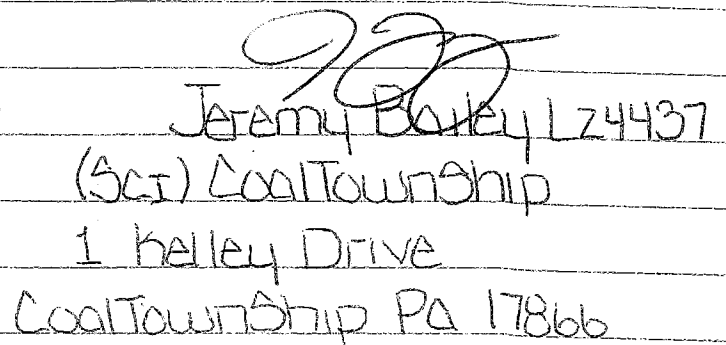 Jeremy Bailey LZ4437
(SCI) CoalTownship
1 Kelley Drive
CoalTownship Pa 17866